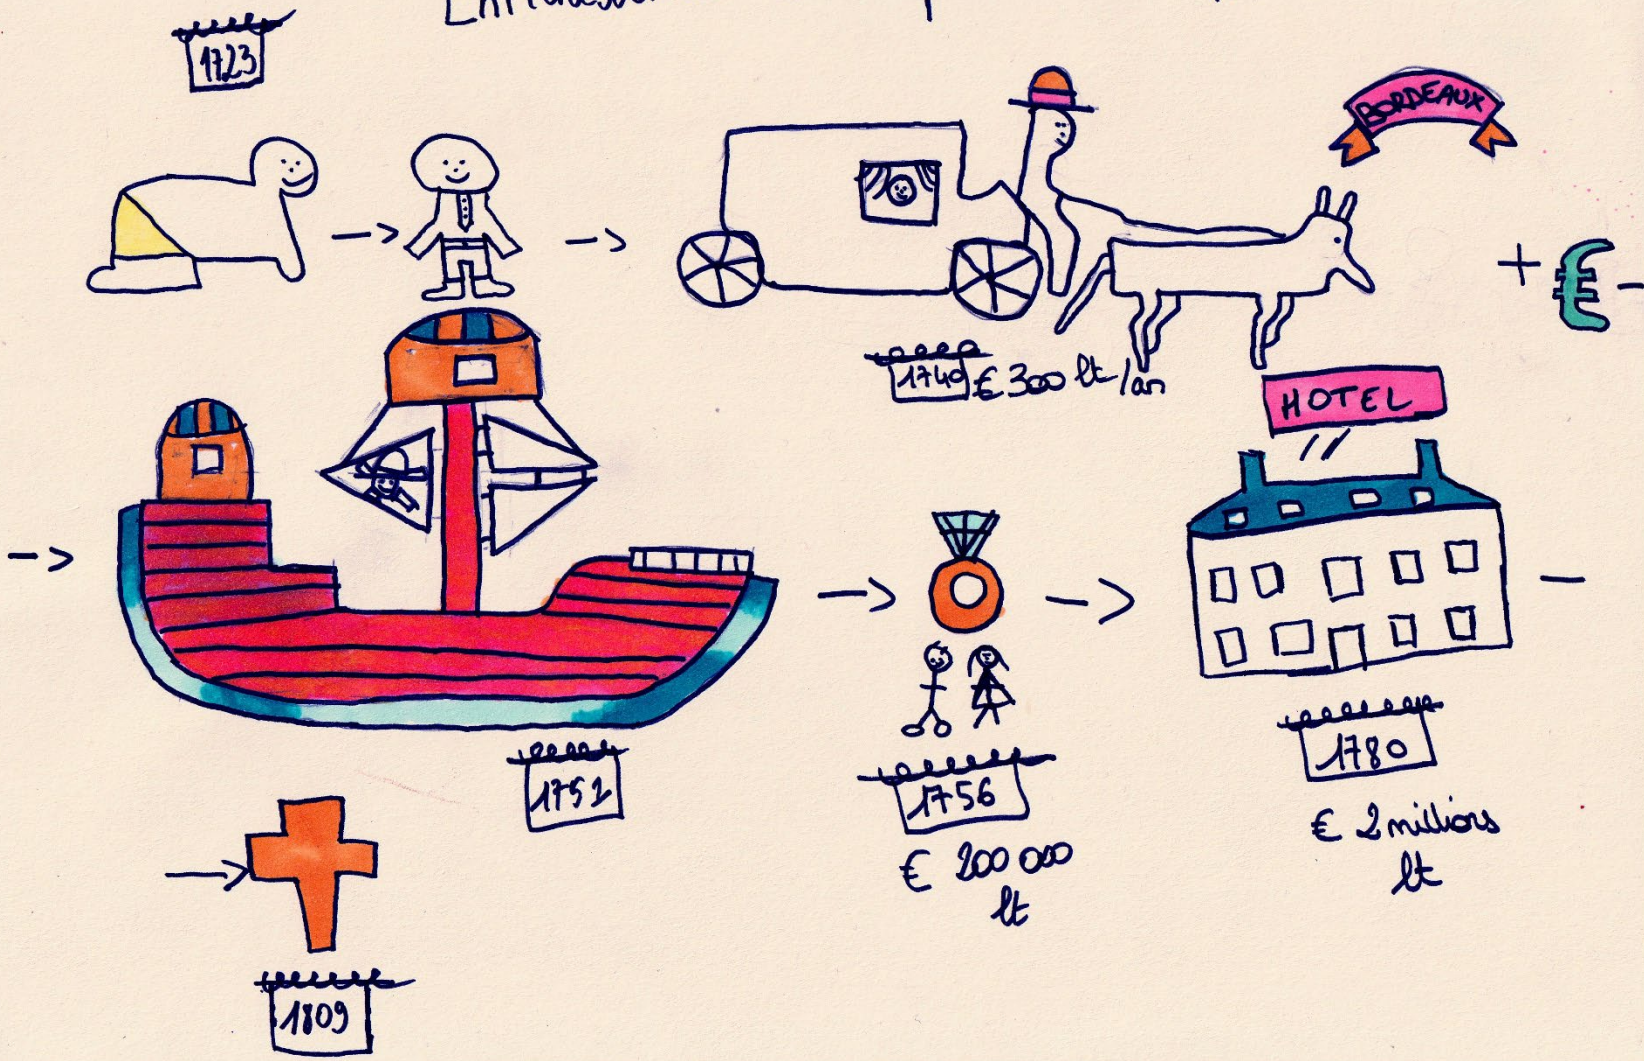 1723
BORDEAUX
€
1740 € 300 lt/an
HOTEL
1752
1756
€ 200 000
lt
1780
€ 2 millions
lt
1809